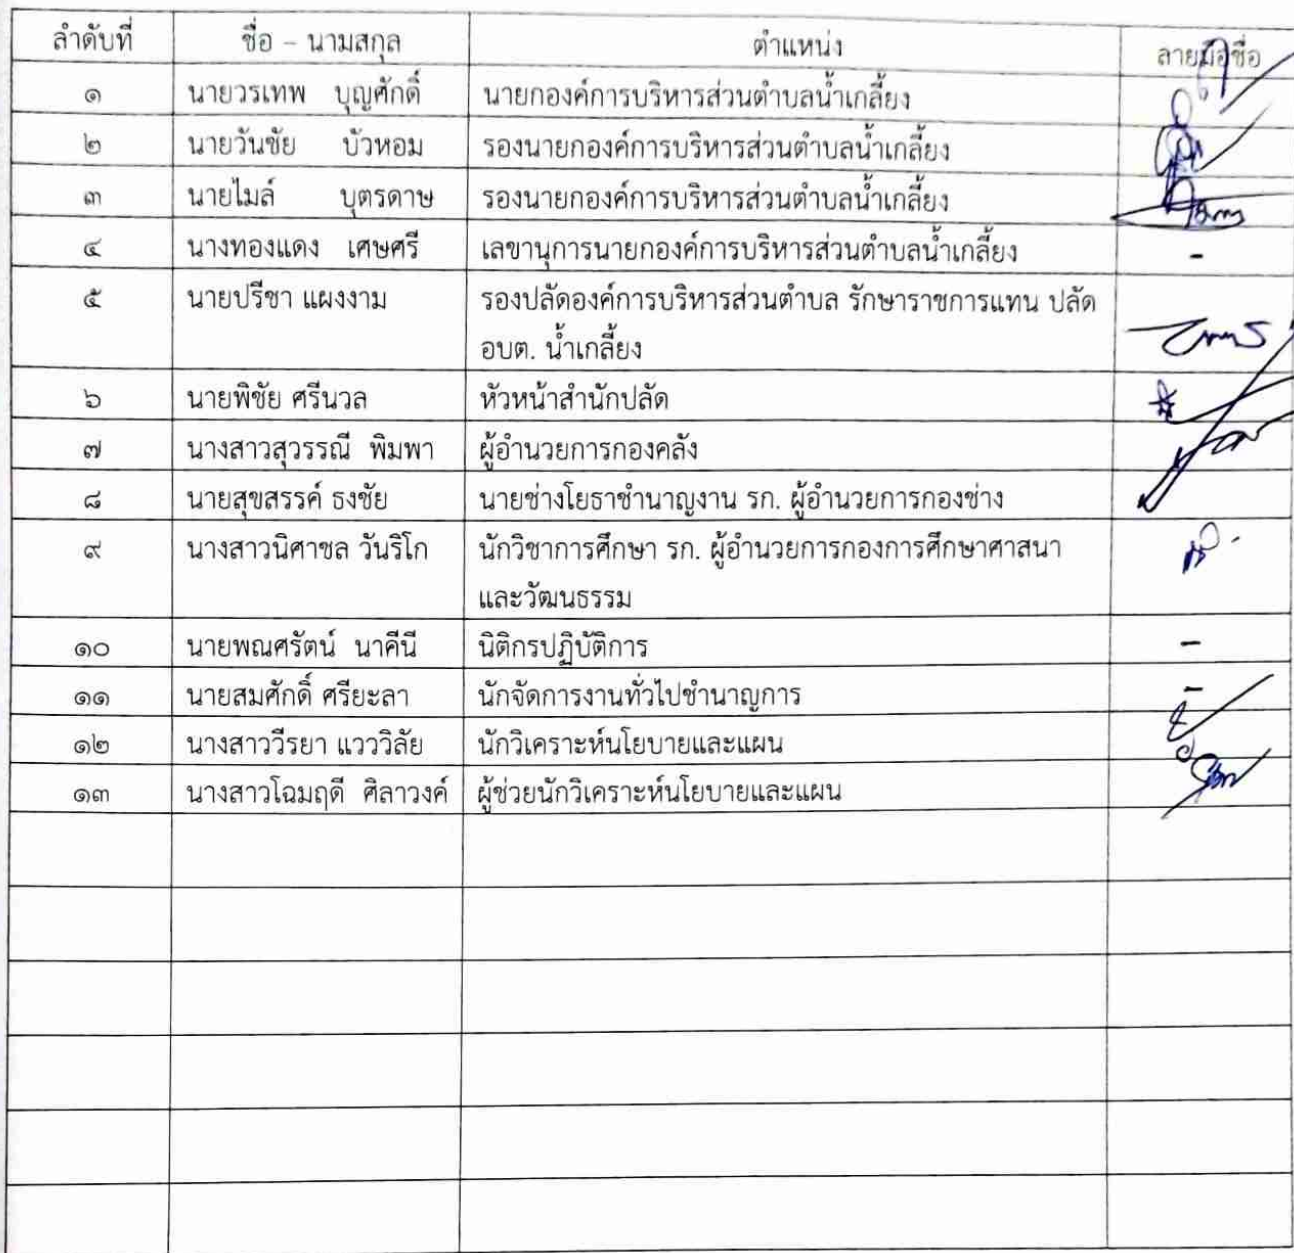 ลำดับที่ ชื่อ – นามสกุล ตำแหน่ง ลายมือชื่อ
๑ นายวรเทพ บุญศักดิ์ นายกองค์การบริหารส่วนตำบลน้ำเกลี้ยง
๒ นายวันชัย บัวหอม รองนายกองค์การบริหารส่วนตำบลน้ำเกลี้ยง
๓ นายไมล์ บุตรดาษ รองนายกองค์การบริหารส่วนตำบลน้ำเกลี้ยง
๔ นางทองแดง เศษศรี เลขานุการนายกองค์การบริหารส่วนตำบลน้ำเกลี้ยง -
๕ นายปรีชา แผงงาม รองปลัดองค์การบริหารส่วนตำบล รักษาราชการแทน ปลัด
อบต. น้ำเกลี้ยง
๖ นายพิชัย ศรีนวล หัวหน้าสำนักปลัด
๗ นางสาวสุวรรณี พิมพา ผู้อำนวยการกองคลัง
๘ นายสุขสรรค์ ธงชัย นายช่างโยธาชำนาญงาน รก. ผู้อำนวยการกองช่าง
๙ นางสาวนิศาชล วันริโก นักวิชาการศึกษา รก. ผู้อำนวยการกองการศึกษาศาสนา
และวัฒนธรรม
๑๐ นายพณศรัตน์ นาคีนี นิติกรปฏิบัติการ -
๑๑ นายสมศักดิ์ ศรียะลา นักจัดการงานทั่วไปชำนาญการ -
๑๒ นางสาววีรยา แวววิลัย นักวิเคราะห์นโยบายและแผน
๑๓ นางสาวโฉมฤดี ศิลาวงค์ ผู้ช่วยนักวิเคราะห์นโยบายและแผน